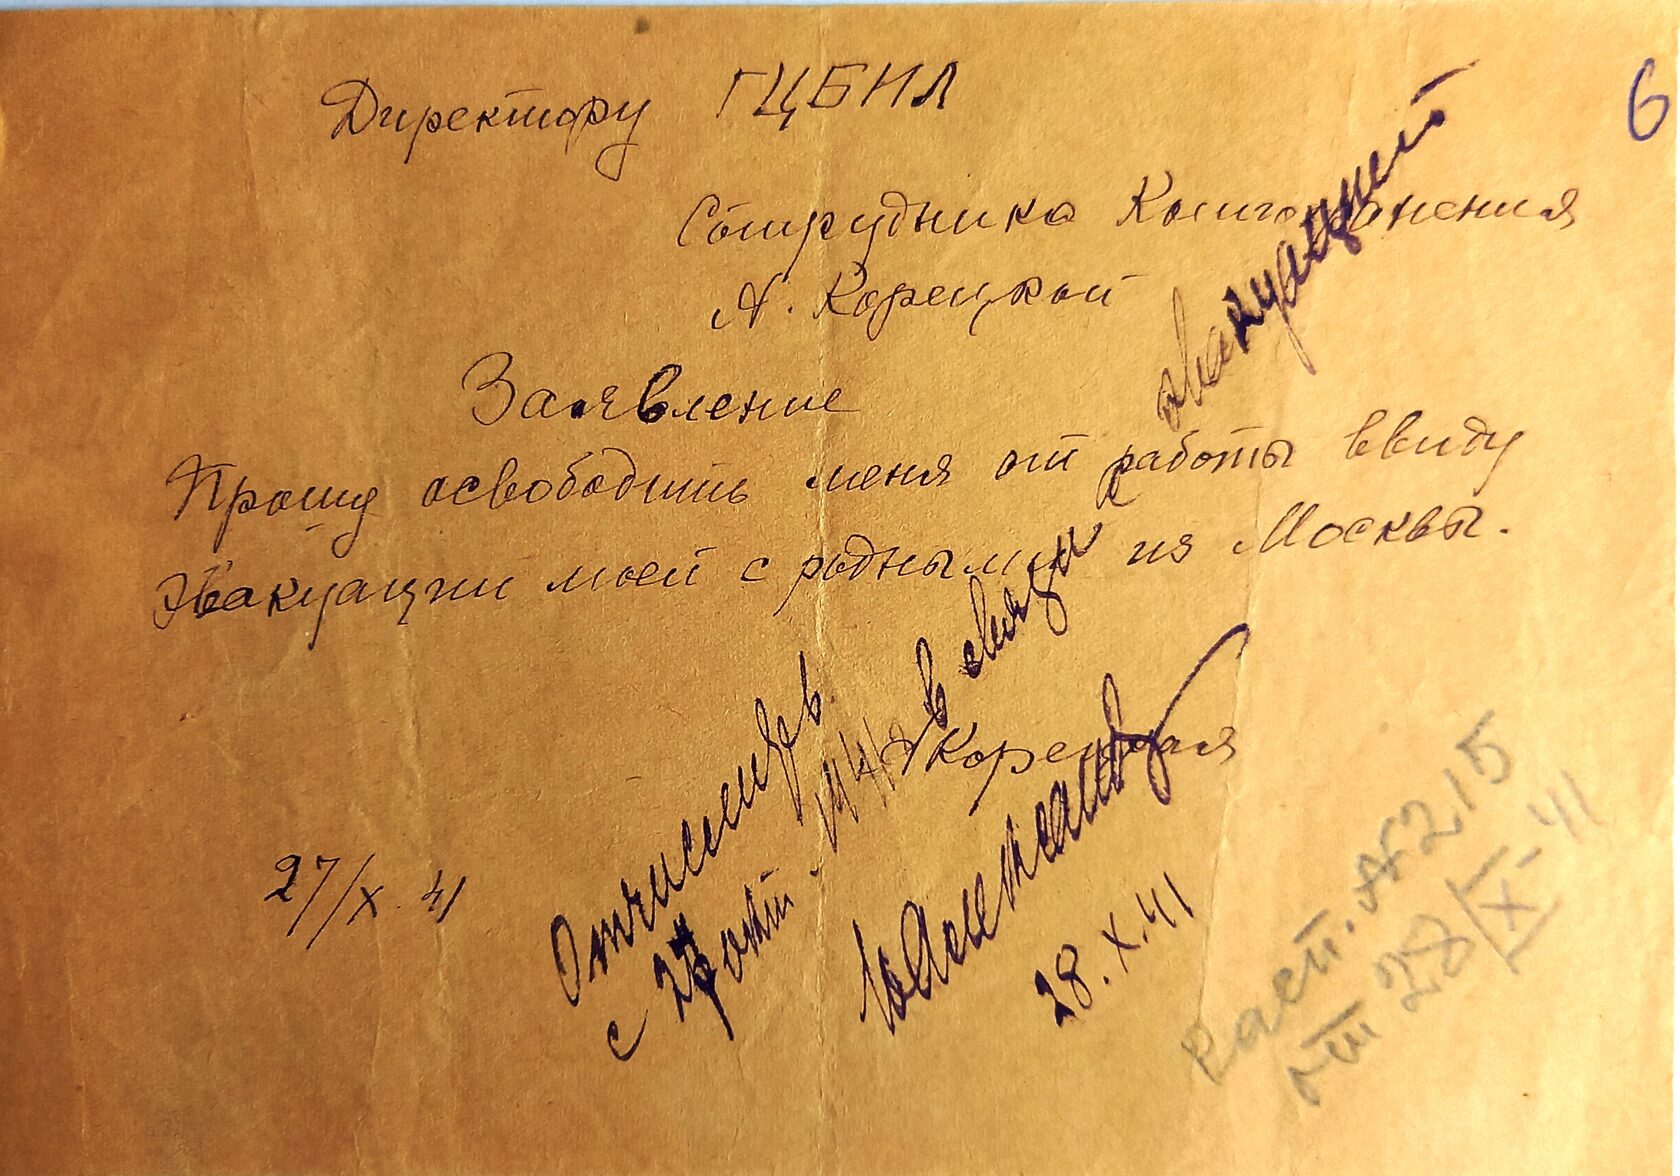 6
Директору ГЦБНЛ
Сотрудника Книгохранения
А. Корецкой
Заявление
Прошу освободить меня от работы ввиду
Эвакуации моей с родными из Москвы.
АКорецкая
27/X. 41
Отчислить
с 27 окт. 1941 в связи
эвакуацией
28.X.41
расп. № 215
от 28/X-41